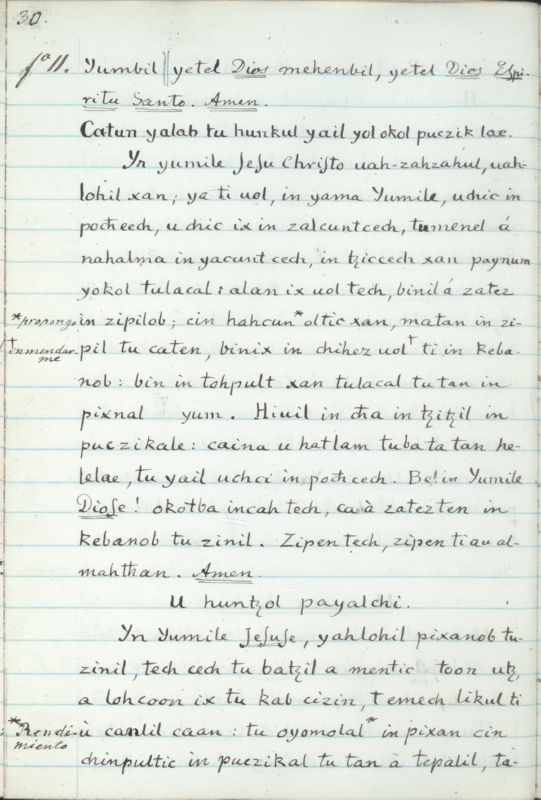 30.
fº 11. Yumbil yetel Dios mehenbil, yetel Dios Espi-
ritu Santo. Amen.
Catun yalab tu hunkul yail yol okol puczik lae.
Yn yumile Jesu Christo uah-zahzahul, uah-
lohil xan; ya ti uol, in yama Yumile, uchic in
pocħcech, uchic ix in zalcuntcech, tumenel á
nahalma in yacunt cech, in tziccech xan paynum
yokol tulacal: alan ix uol tech, binil á zatez
*propongo in zipilob; cin hahcun*oltic xan, matan in zi-
†enmendar-me pil tu caten, binix in chihez uol† ti in keba-
nob: bin in tohpult xan tulacal tu tan in
pixnal yum. Hiuil in cħa in tzitzil in
puczikale: caina u hatlam tuba ta tan he-
lelae, tu yail uchci in pocħcech. Be! in Yumile
Diose! okotba incah tech, ca à zatezten in
kebanob tu zinil. Zipen tech, zipen ti au al-
mahthan. Amen.
U huntzol payalchi.
Yn Yumile Jesuse, yahlohil pixanob tu-
zinil, tech cech tu batzil a mentic toon utz,
a lohcoon ix tu kab cizin, t emech likul ti
*Rendi-miento ù canlil caan: tu oyomolal* in pixan cin
chinpultic in puczikal tu tan à tepalil, ta-